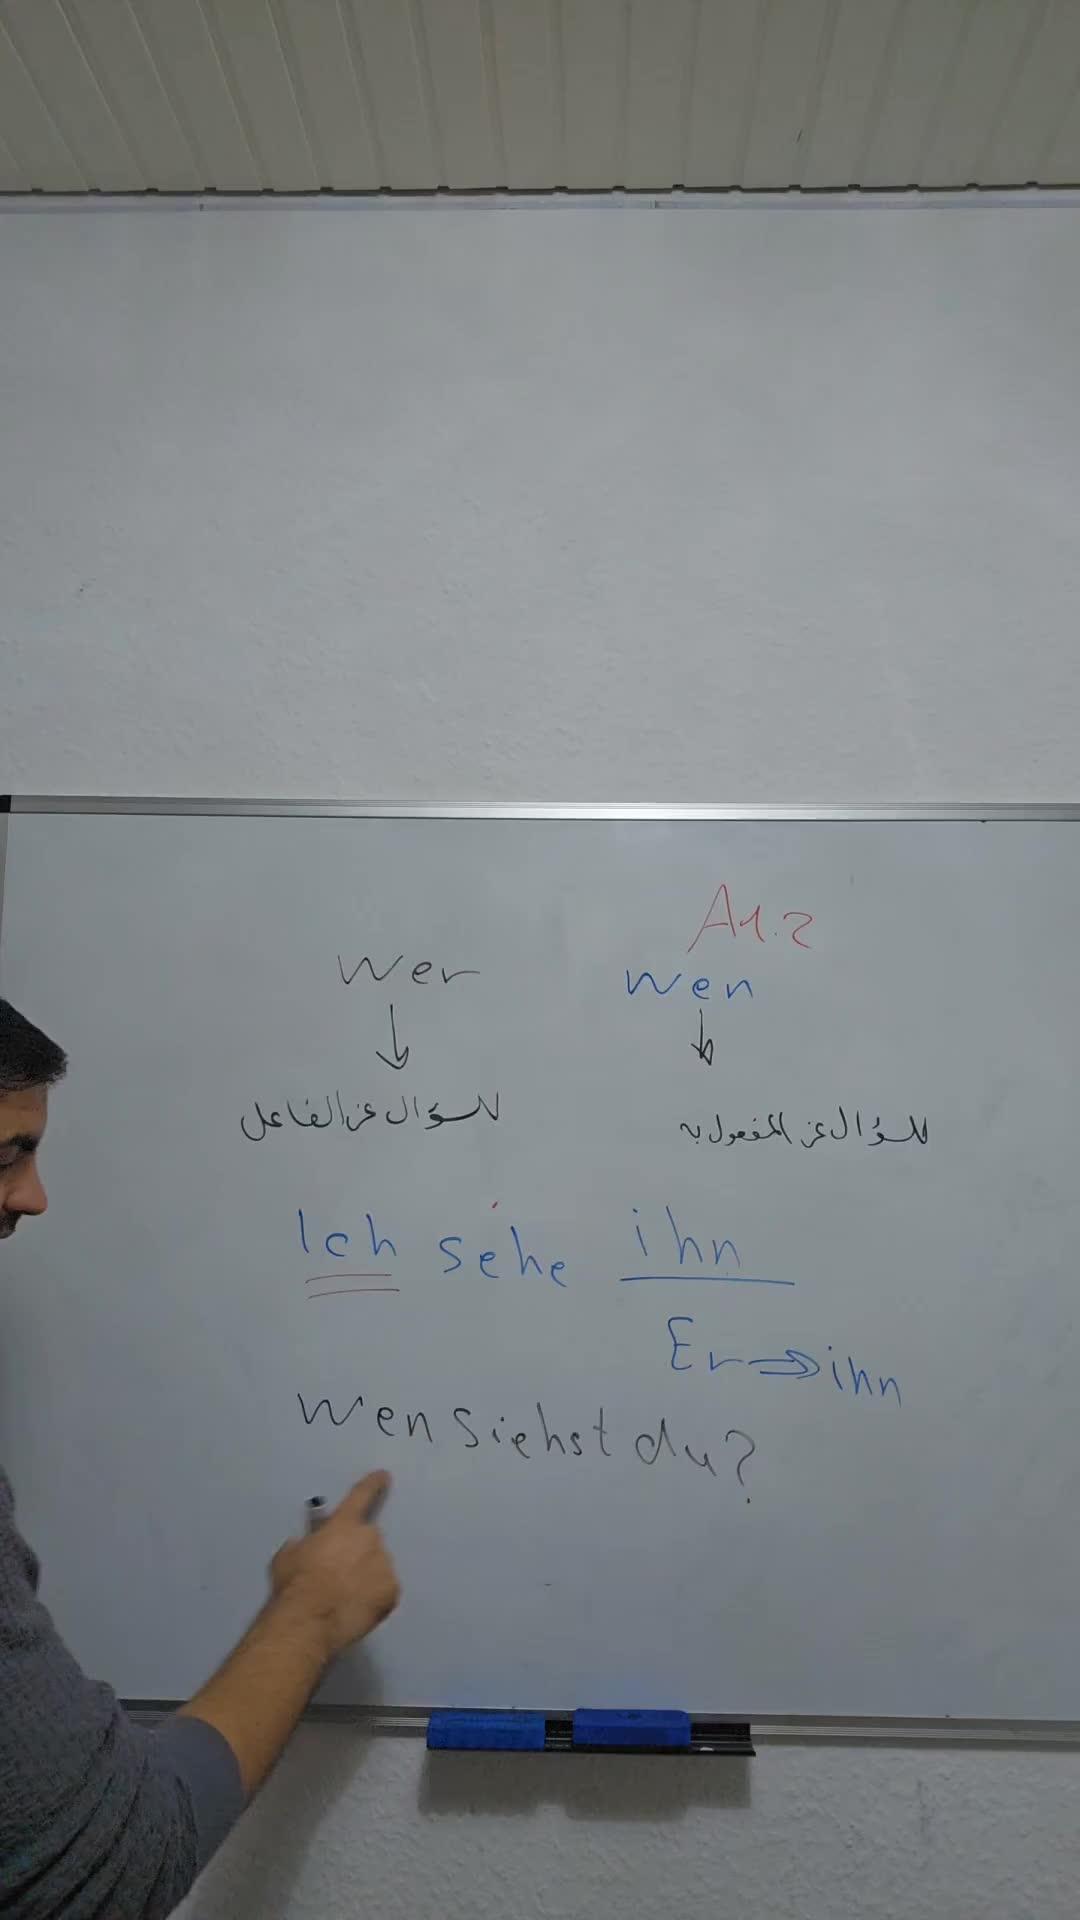 A1.2
Wer wen
↓ ↓
للسؤال عن الفاعل للسؤال عن المفعول به
Ich sehe ihn
Er ⇒ ihn
Wen siehst du?